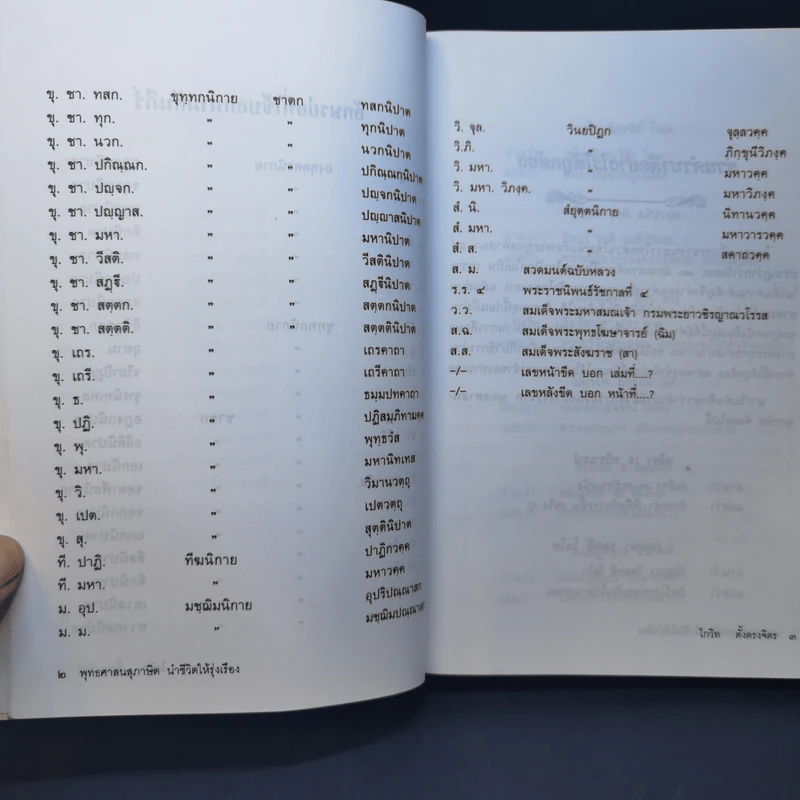 ขุ. ชา. ทสก. ขุททกนิกาย ชาตก ทสกนิปาต
ขุ. ชา. ทุก. " " ทุกนิปาต
ขุ. ชา. นวก. " " นวกนิปาต
ขุ. ชา. ปกิณฺณก. " " ปกิณฺณกนิปาต
ขุ. ชา. ปญฺจก. " " ปญฺจกนิปาต
ขุ. ชา. ปญฺญาส. " " ปญฺญาสนิปาต
ขุ. ชา. มหา. " " มหานิปาต
ขุ. ชา. วีสติ. " " วีสตินิปาต
ขุ. ชา. สฏฺฐี. " " สฏฺฐีนิปาต
ขุ. ชา. สตฺตก. " " สตฺตกนิปาต
ขุ. ชา. สตฺตติ. " " สตฺตตินิปาต
ขุ. เถร. " เถรคาถา
ขุ. เถรี. " เถรีคาถา
ขุ. ธ. " ธมฺมปทคาถา
ขุ. ปฏิ. " ปฏิสมฺภิทามคฺค
ขุ. พุ. " พุทฺธวํส
ขุ. มหา. " มหานิทเทส
ขุ. วิ. " วิมานวตฺถุ
ขุ. เปต. " เปตวตฺถุ
ขุ. สุ. " สุตฺตนิปาต
ที. ปาฏิ. ทีฆนิกาย ปาฏิกวคฺค
ที. มหา. " มหาวคฺค
ม. อุป. มชฺฌิมนิกาย อุปริปณฺณาสก
ม. ม. " มชฺฌิมปณฺณาสก
๒ พุทธศาสนสุภาษิต นำชีวิตให้รุ่งเรือง
วิ. จุล. วินยปิฎก จุลฺลวคฺค
วิ.ภิ. " ภิกฺขุนีวิภงฺค
วิ. มหา. " มหาวคฺค
วิ. มหา. วิภงฺค. " มหาวิภงฺค
สํ. นิ. สํยุตฺตนิกาย นิทานวคฺค
สํ. มหา. " มหาวารวคฺค
สํ. ส. " สคาถวคฺค
ส. ม. สวดมนต์ฉบับหลวง
ร.ร. ๔ พระราชนิพนธ์รัชกาลที่ ๔
ว.ว. สมเด็จพระมหาสมณเจ้า กรมพระยาวชิรญาณวโรรส
ส.ฉ. สมเด็จพระพุทธโฆษาจารย์ (ฉิม)
ส.ส. สมเด็จพระสังฆราช (สา)
-/- เลขหน้าขีด บอก เล่มที่....?
-/- เลขหลังขีด บอก หน้าที่....?
โกวิท ตั้งตรงจิตร ๓